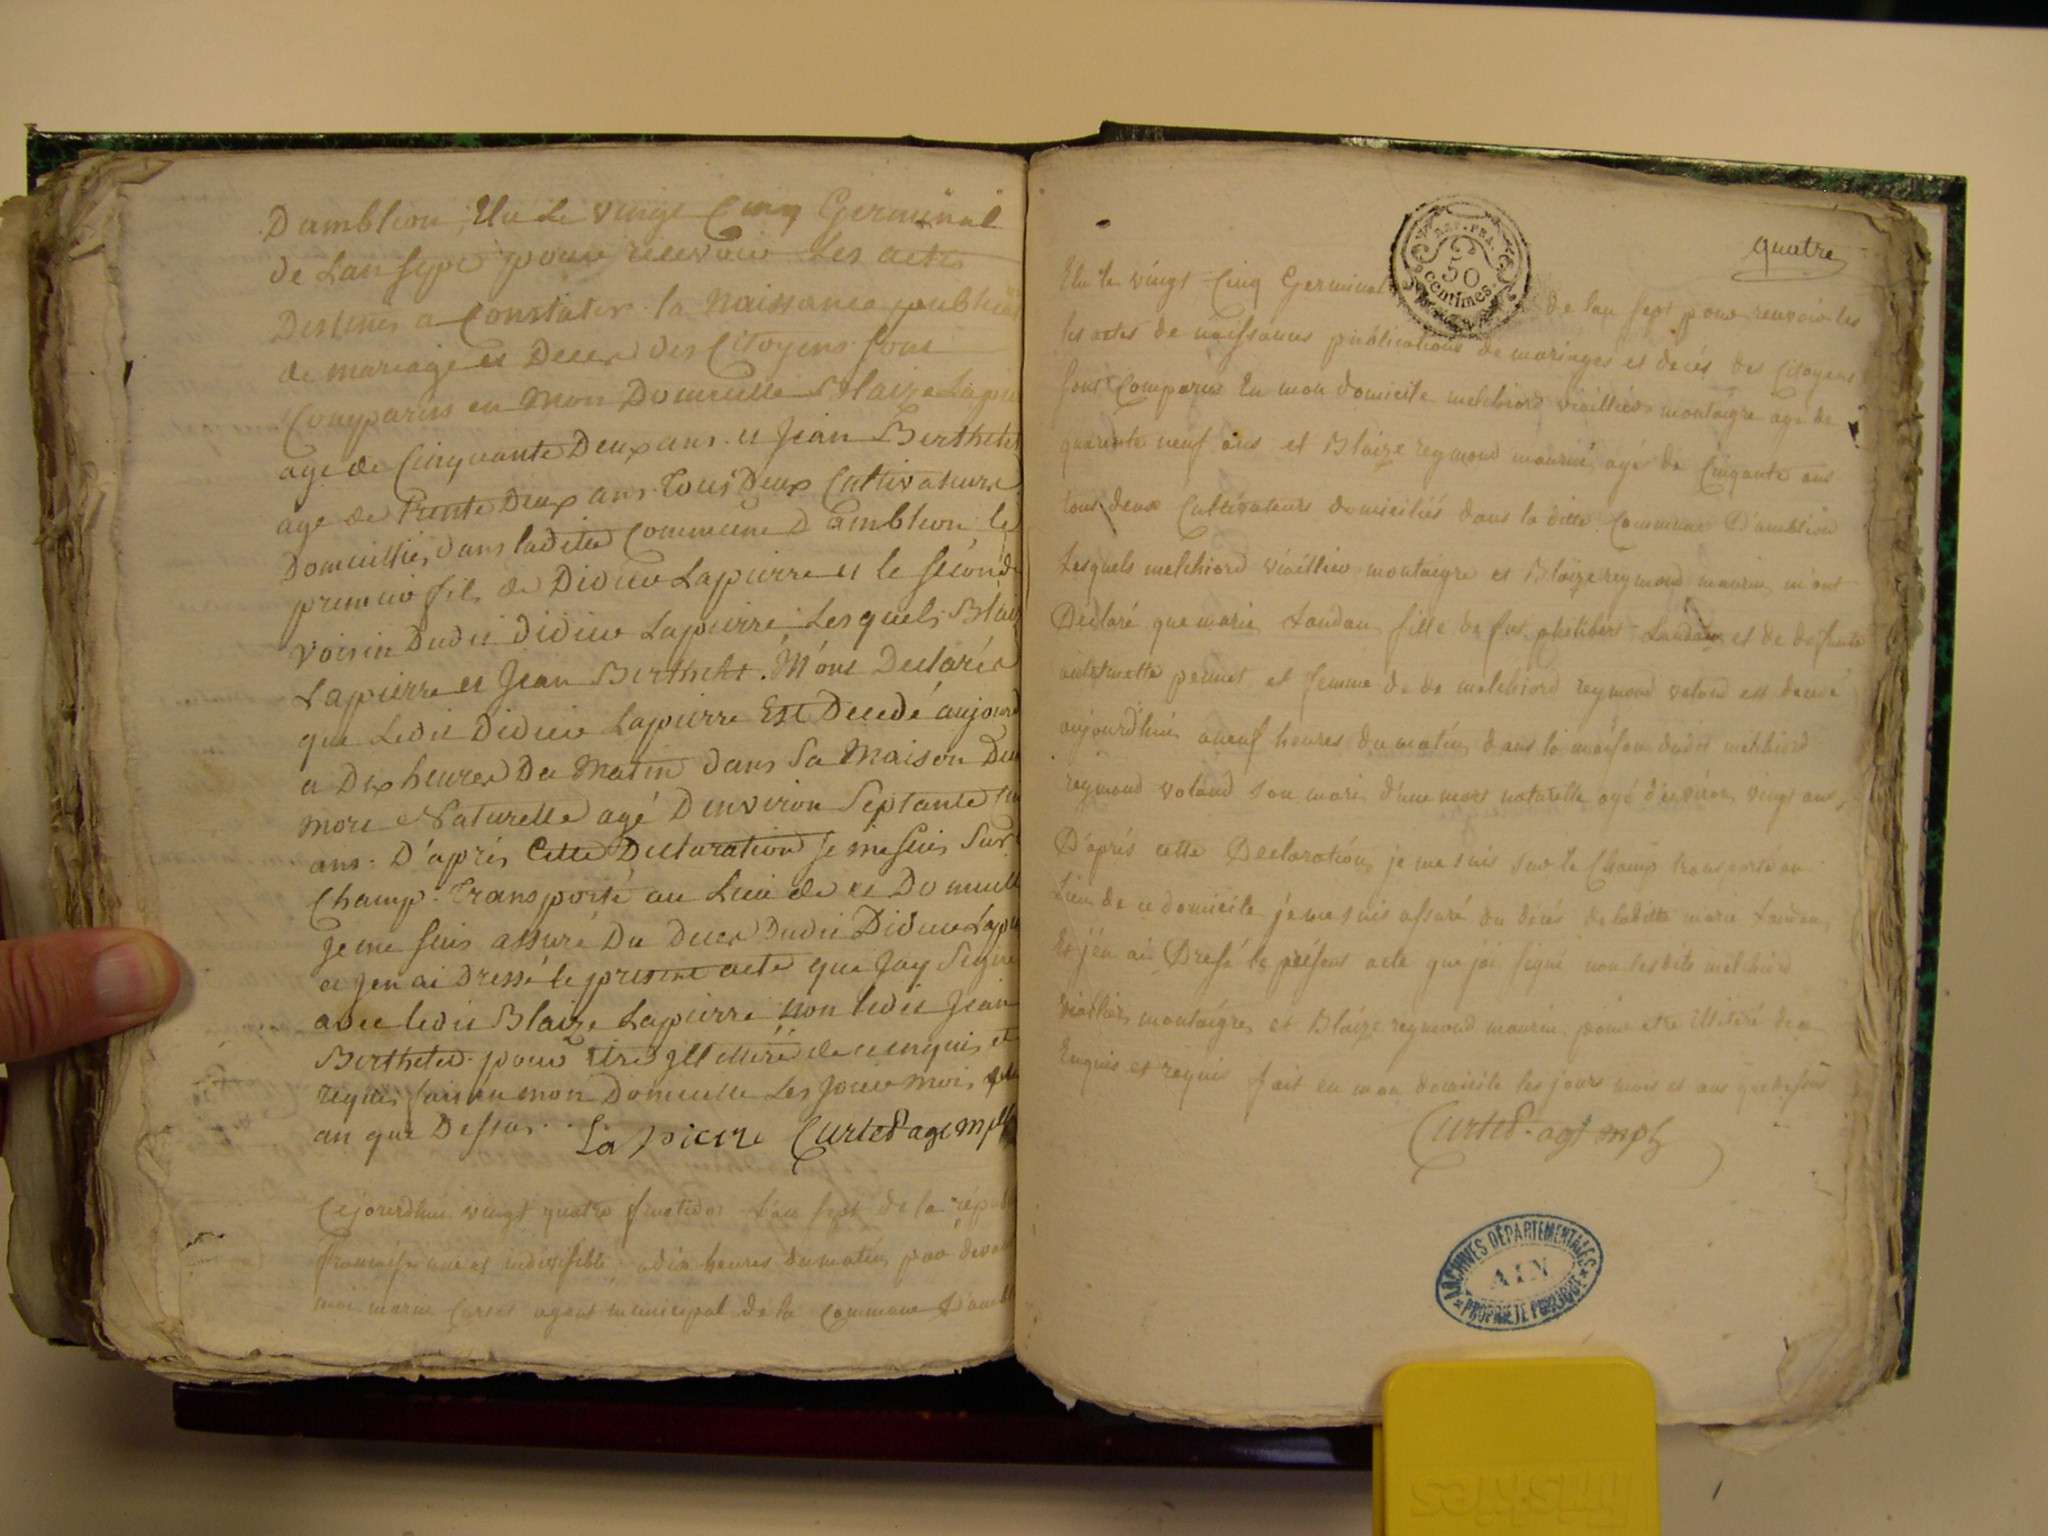 D'amblion, Elu Le vingt Cinq Germinal
de L'an sept pour recevoir Les actes
Destinés a Constater la Naissance publica
de mariage et Deces des Citoyens sont
Comparus en Mon Domicille Blaize Lapie
agé de Cinquante Deux ans et Jean Berthelet
agé de Trente Deux ans Tous Deux Cultivateurs
Domicilliés dans ladite Commune D'amblion, le
premier fils de Didier Lapierre et le second
voisin Dudit Didier Lapierre, Lesquels Blaiz
Lapierre et Jean Berthelet M'ont Declaré
que Ledit Didier Lapierre Est Decedé aujourd
a Dix heures Du Matin dans Sa Maison De
mort Naturelle agé D'environ Septante
ans. D'après Cette Declaration je me suis Sur
Champ Transporté au Lieu de ce Domicille
Je me suis assuré Du deces Dudit Didier Lapie
et J'en ai Dressé le present acte que J'ay Signé
avec ledit Blaize Lapierre non ledit Jean
Berthelet pour Etre illettéré de ce enquis et
requis fait en mon Domicille Les Jour Mois et
an que Dessus.
La pierre Curtet age mpl
Cejourdhui vingt quatre fructidor L'an sept de la répub
française une et indivisible a dix heures du matin, par devan
moi Curtet agent municipal de la Commune D'ambl
quatre
REP. FRA.
50
centimes.
Elu le vingt Cinq Germinal de l'an sept pour recevoir les
les actes de naissances publications de mariages et decés des Citoyens
sont Comparus En mon domicile melchiord montaigre agé de
quarente neuf ans et Blaize reymond maurin agé de Cinqante ans
tous deux Cultivateurs domiciliés dans la ditte Commune D'amblion
Lesquels melchiord montaigre et Blaize reymond maurin m'ont
Déclaré que marie Landau fille de feu philibert Landau et de deffunte
pernet et femme de de melchiord reymond voland est decedé
aujourdhui a neuf heures du matin, dans la maison dudit melchiord
reymond voland son mari d'une mort naturelle agé d'environ vingt ans,
D'après cette Declaration, je me suis sur le Champ transporté au
Lieu de ce domicile je me suis assuré du décés de laditte marie Landau,
Et j'en ai Dressé le présent acte que j'ai signé non lesdits melchiord
montaigre et Blaize reymond maurin pour etre illitéré de ce
Enquis et requis fait en mon domicile les jours mois et ans que dessus
Curtet agt mpl
ARCHIVES DÉPARTEMENTALES
AIN
* PROPRIÉTÉ PUBLIQUE *